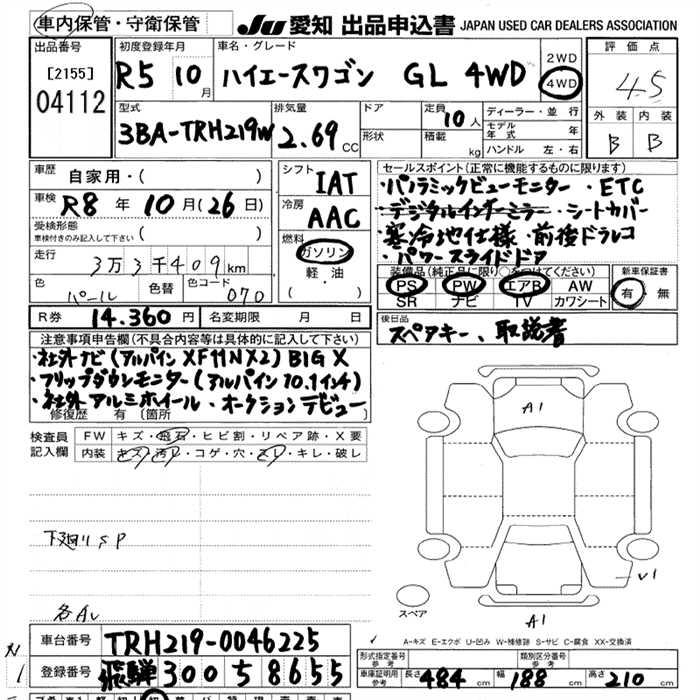 車内保管・守衛保管
JU 愛知 出品申込書 JAPAN USED CAR DEALERS ASSOCIATION
出品番号
[2155]
04112
初度登録年月
R5 10月
車名・グレード
ハイエースワゴン GL 4WD
2WD
4WD
評価点
4.5
外装 内装
B B
型式
3BA-TRH219W
排気量
2.69 CC
ドア
形状
定員 10人
積載 kg
ディーラー・並行
モデル年式 年
ハンドル 左・右
車歴
自家用・( )
車検 R8年 10月(26日)
受検形態
車検付きのみ記入して下さい ( )
走行
3万3千409km
色 パール 色替 色コード 070
シフト
IAT
冷房
AAC
燃料
ガソリン
軽・油
( ・ )
セールスポイント(正常に機能するものに限ります)
・パノラミックビューモニター ・ETC
・デジタルインナーミラー ・シートカバー
・寒冷地仕様 ・前後ドラレコ
・パワースライドドア
装備品(純正品に限り○をつけてください)
PS PW エアB AW
SR ナビ TV カワシート
新車保証書
有・無
R券 14.360円 名変期限 月 日
後日品
スペアキー、取説書
注意事項申告欄(不具合内容等は具体的に記入して下さい)
・社外ナビ(アルパイン XF11NX2) BIG X
・フリップダウンモニター(アルパイン10.1インチ)
・社外アルミホイール ・オークションデビュー
修復歴 有 〔箇所 〕
検査員記入欄
FW キズ・飛石・ヒビ割・リペア跡・X要
内装 キズ・汚レ・コゲ・穴・スレ・キレ・破レ
下廻りSP
A1
V1
A1
スペア
A-キズ E-エクボ U-凹み W-補修跡 S-サビ C-腐食 XX-交換済
車台番号 TRH219-0046225
登録番号 飛騨 300 58655
形式指定番号 参考
類別区分番号 参考
車庫証明用 参考
長さ 484cm 幅 188cm 高さ 210cm